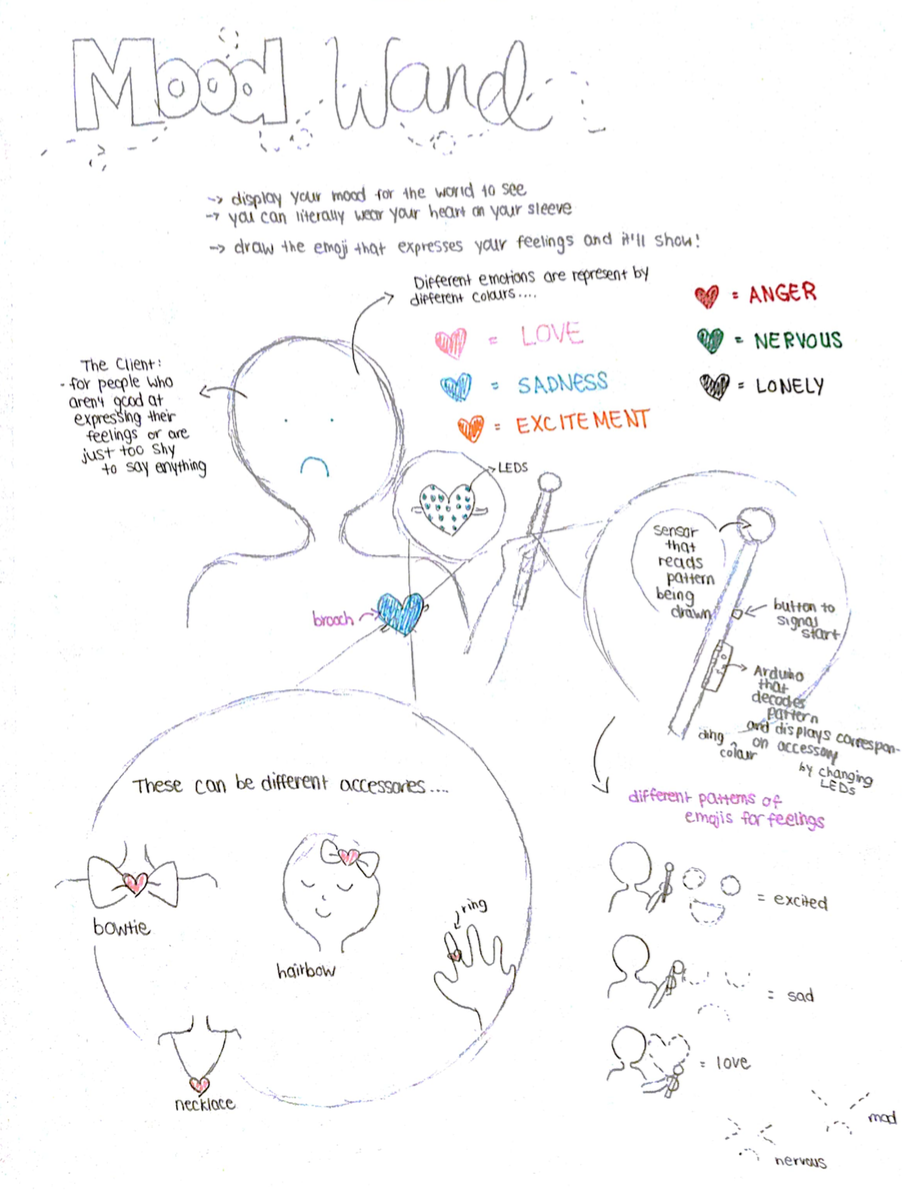 Mood Wand
-> display your mood for the world to see
-> you can literally wear your heart on your sleeve
-> draw the emoji that expresses your feelings and it'll show!
Different emotions are represent by
different colours....
= LOVE
= SADNESS
= EXCITEMENT
= ANGER
= NERVOUS
= LONELY
The Client:
- for people who
aren't good at
expressing their
feelings or are
just too shy
to say anything
LEDS
brooch
sensor
that
reads
pattern
being
drawn
button to
signal
start
Arduino
that
decodes
pattern
and displays correspon-
ding colour on accessory
by changing
LEDs
These can be different accessories....
bowtie
hairbow
ring
necklace
different patterns of
emojis for feelings
= excited
= sad
= love
mad
nervous